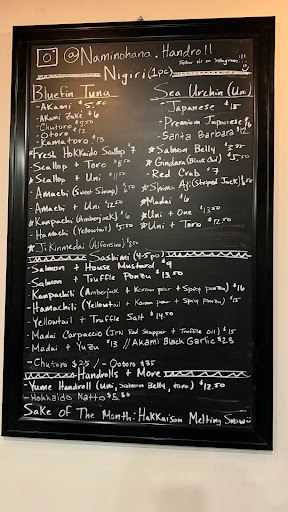 @Naminohana.Handroll
Follow us on Instagram!!
Nigiri (1pc)
Bluefin Tuna
- Akami $5.50
- Akami Zuke $6
- Chutoro
- Otoro $12
- Kamatoro $13
★Fresh Hokkaido Scallop $7
- Scallop + Toro $8.50
★Scallop + Uni
- Amaebi (Sweet Shrimp)
- Amaebi + Uni
★Kanpachi (Amberjack) $6
- Hamachi (Yellowtail) $5.50
★Ji Kinmedai (Alfonsino)
Sea Urchin (Uni)
- Japanese $15
- Premium Japanese
- Santa Barbara $12
★Salmon Belly
★Gindara (Black Cod) $5.50
- Red Crab $7
★Shima Aji (Striped Jack)
★Madai $6
★Uni + One $13.50
★Uni + Toro $12.50
Sashimi (4-5pc)
- Salmon + House Mustard $9
- Salmon + Truffle Ponzu $13.50
- Kanpachi (Amberjack + Korean pear + Spicy ponzu) $16
- Hamachi (Yellowtail + Korean pear + Spicy ponzu) $15
- Yellowtail + Truffle Salt $14.50
- Madai Carpaccio (JPN Red Snapper + Truffle Oil) $15
- Madai + Yuzu $13 // Akami Black Garlic $23
- Chutoro $25 / - Ootoro $35
Handrolls + More
- Yume Handroll (Uni, Salmon Belly, Toro) $12.50
- Hokkaido Natto
Sake Of The Month: Hakkaisan Melting Snow